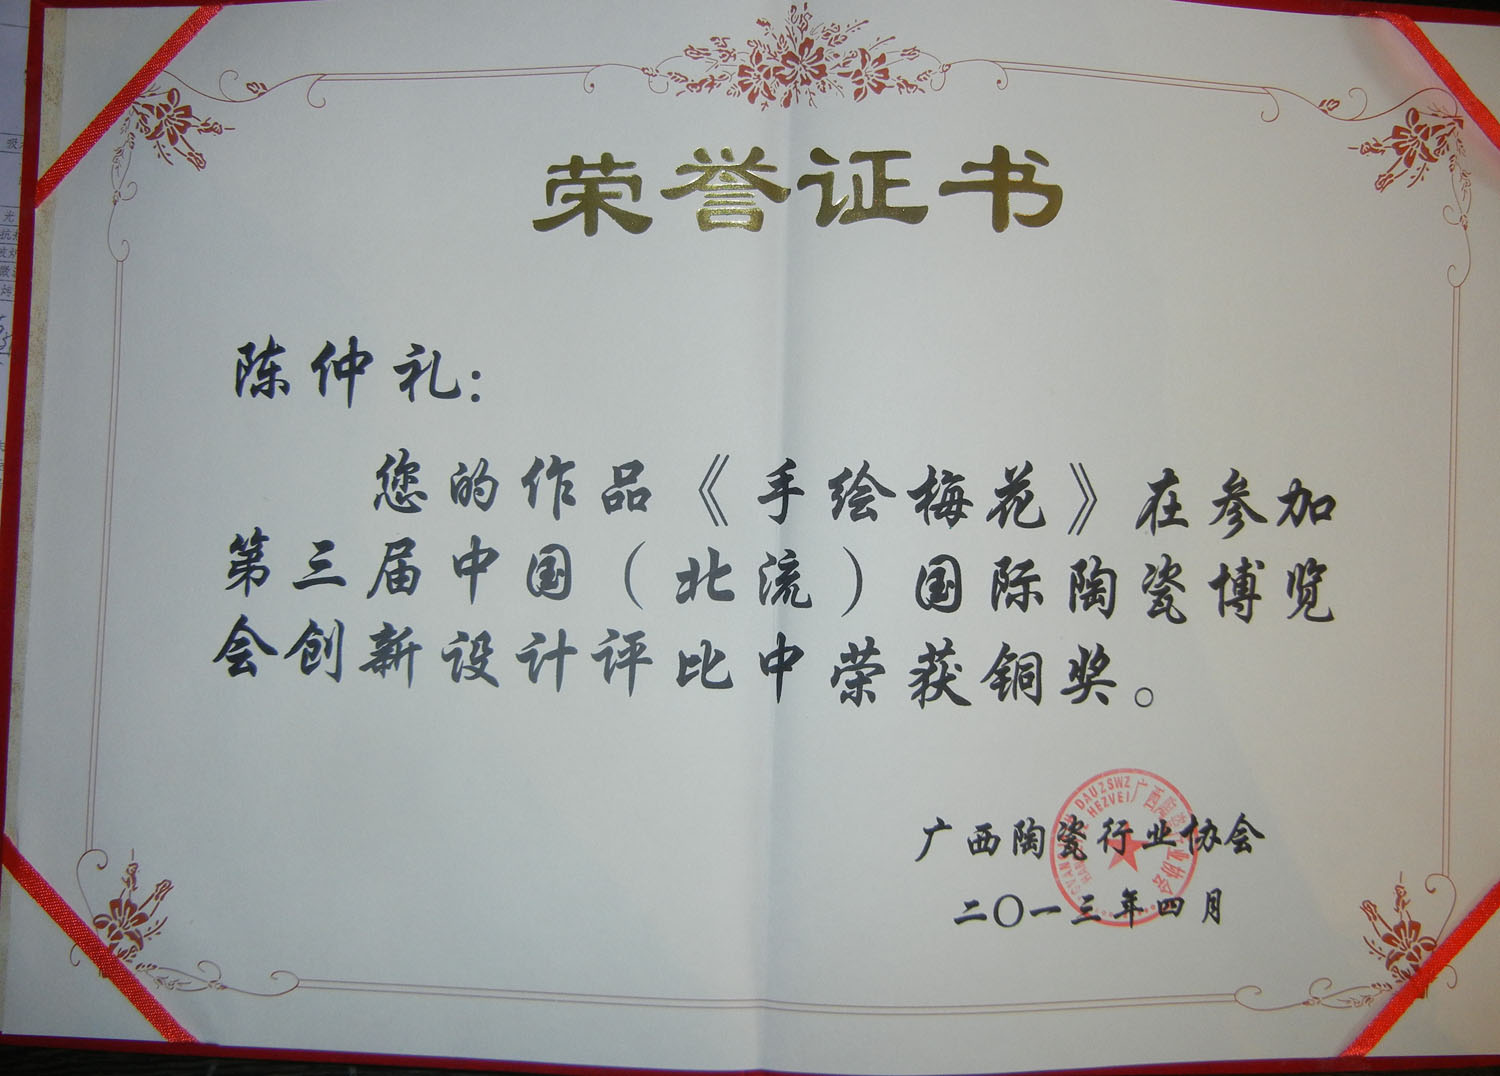 荣誉证书
陈仲礼：
您的作品《手绘梅花》在参加
第三届中国（北流）国际陶瓷博览
会创新设计评比中荣获铜奖。
广西陶瓷行业协会
二〇一三年四月
DAUZSWZ
HEZVEI
广西陶瓷行业协会